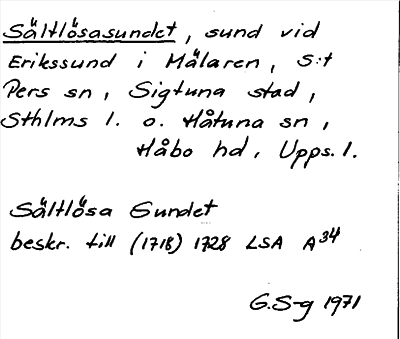 Sältlösasundet, sund vid
Erikssund i Mälaren, S:t
Pers sn, Sigtuna stad,
Sthlms l. o. Håtuna sn,
Håbo hd, Upps. l.
Sältlösa Sundet
beskr. till (1718) 1728 LSA A34
G.S-g 1971